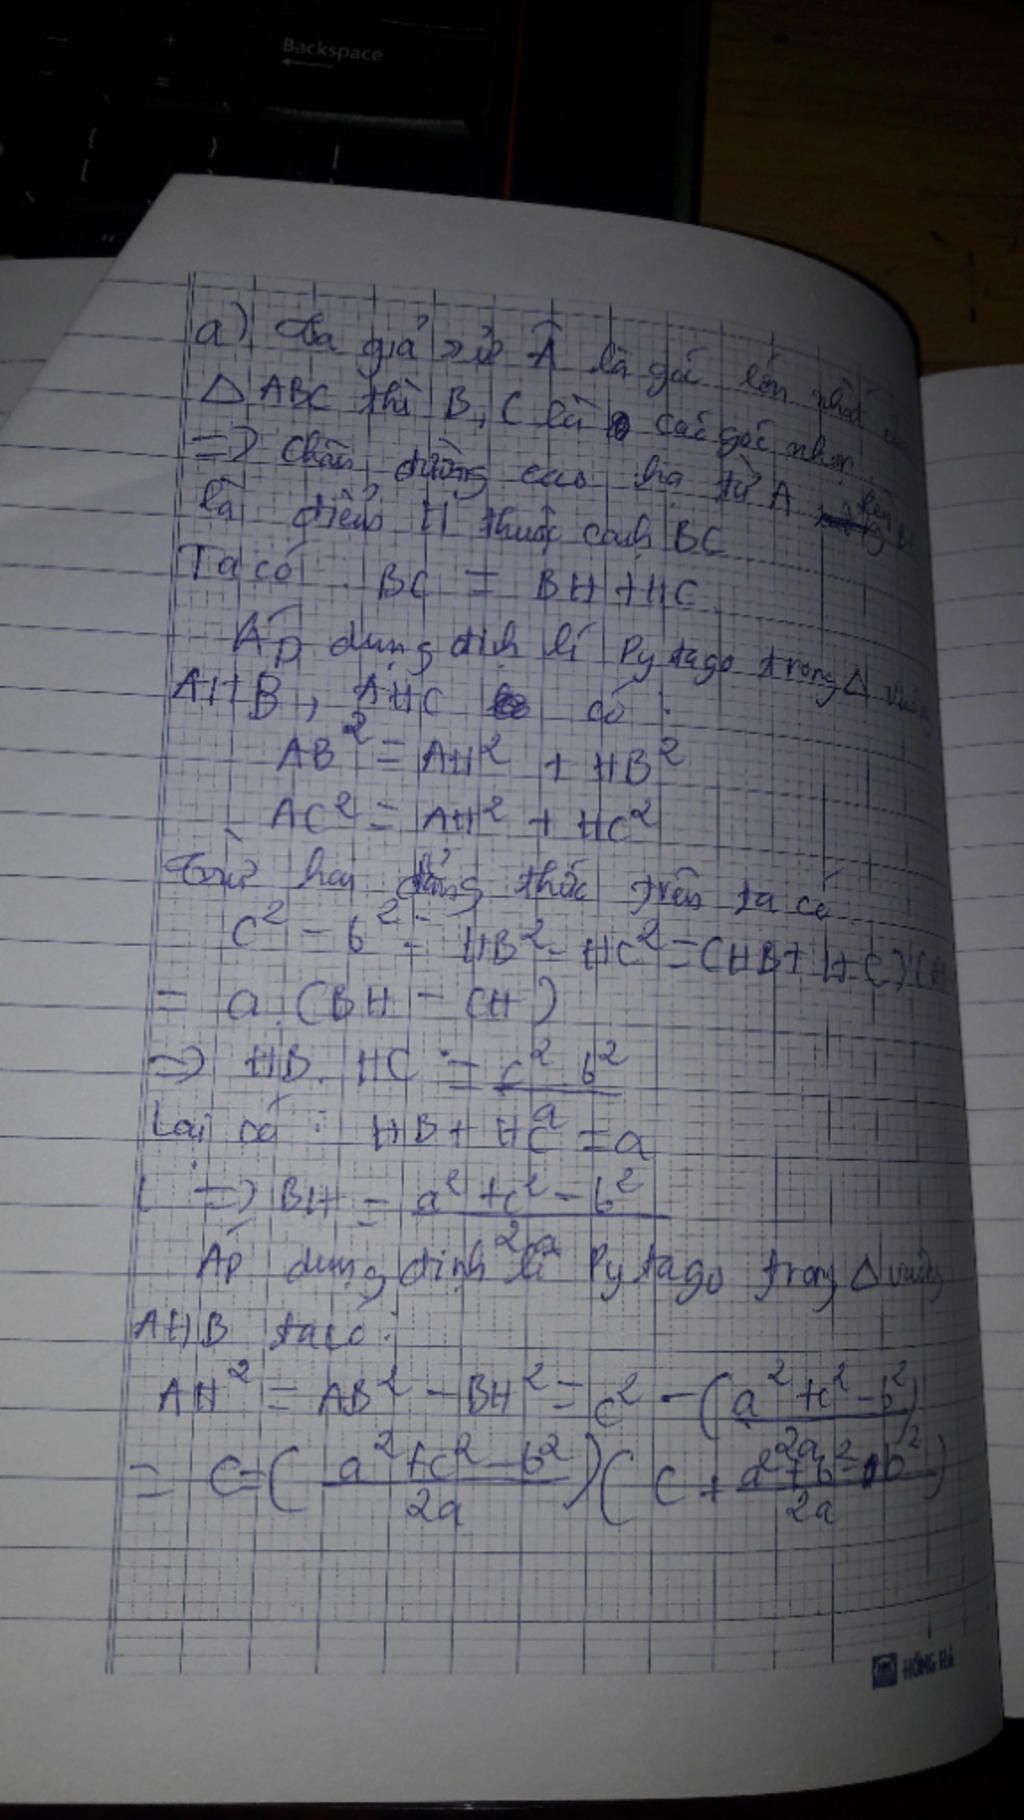 Backspace
a) Ta giả sử Â là góc lớn nhất
Δ ABC thì B, C là các góc nhọn
=> Chân đường cao hạ từ A
là điểm H thuộc cạnh BC
Ta có : BC = BH + HC
Áp dụng định lí Pytago trong Δ vuông
AHB, AHC có :
AB² = AH² + HB²
AC² = AH² + HC²
Trừ hai đẳng thức trên ta có
c² - b² = HB² - HC² = (HB + HC)
= a.(BH - CH)
=> HB. HC = c² b² / a
Lại có : HB + HC = a
=> BH = a² + c² - b² / 2a
Áp dụng định lí Pytago trong Δ vuông
AHB ta có :
AH² = AB² - BH² = c² - (a² + c² - b² / 2a)
= C = (a² + c² - b² / 2a)(c + a² + b² - b² / 2a)
HỒNG HÀ